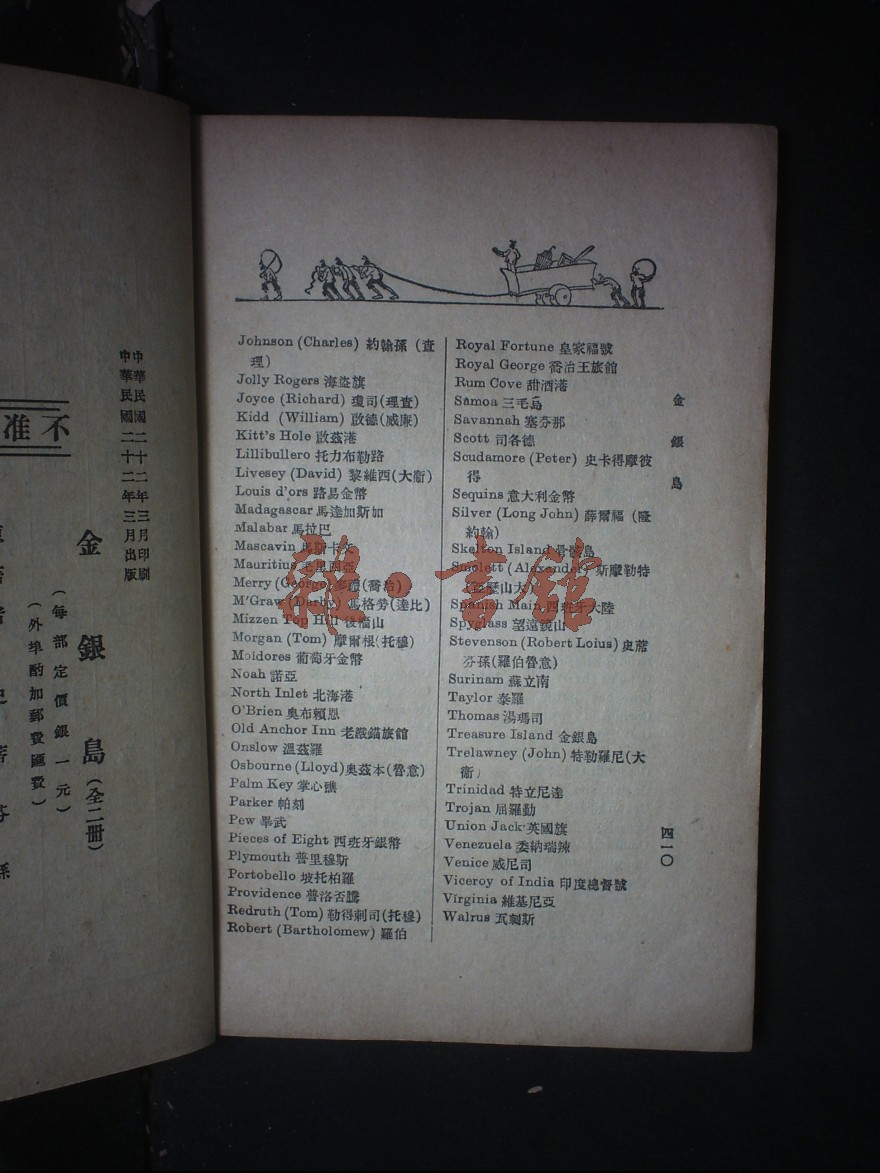 Johnson (Charles) 約翰孫 (查
理)
Jolly Rogers 海盜旗
Joyce (Richard) 瓊司(理查)
Kidd (William) 啟德(威廉)
Kitt's Hole 啟茲港
Lillibullero 托力布勒路
Livesey (David) 黎維西(大衞)
Louis d'ors 路易金幣
Madagascar 馬達加斯加
Malabar 馬拉巴
Mascavin 馬斯卡文
Mauritius 毛里西亞
Merry (George) 多禮(喬治)
M'Graw (Darby) 馬格勞(達比)
Mizzen Top Hill 後檣山
Morgan (Tom) 摩爾根(托穆)
Moidores 葡萄牙金幣
Noah 諾亞
North Inlet 北海港
O'Brien 奧布賴恩
Old Anchor Inn 老鐵錨旅館
Onslow 溫茲羅
Osbourne (Lloyd)奧茲本(魯意)
Palm Key 掌心礁
Parker 帕刻
Pew 畢武
Pieces of Eight 西班牙銀幣
Plymouth 普里穆斯
Portobello 坡托柏羅
Providence 普洛否騰
Redruth (Tom) 勒得刺司(托穆)
Robert (Bartholomew) 羅伯
Royal Fortune 皇家福號
Royal George 喬治王旅館
Rum Cove 甜酒港
Samoa 三毛島
Savannah 塞芬那
Scott 司各德
Scudamore (Peter) 史卡得摩彼
得
Sequins 意大利金幣
Silver (Long John) 薛爾福 (隆
約翰)
Skelton Island 骨骸島
Smolett (Alaxendel) 斯摩勒特
(亞歷山大)
Spanish Main 西班牙大陸
Spyglass 望遠鏡山
Stevenson (Robert Loius) 史蒂
芬孫(羅伯魯意)
Surinam 蘇立南
Taylor 泰羅
Thomas 湯瑪司
Treasure Island 金銀島
Trelawney (John) 特勒羅尼(大
衞)
Trinidad 特立尼達
Trojan 屈羅勤
Union Jack 英國旗
Venezuela 委納瑞辣
Venice 威尼司
Viceroy of India 印度總督號
Virginia 維基尼亞
Walrus 瓦剌斯
金銀島
四一〇
雜·書館
中華民國二十二年三月印刷
中華民國二十二年三月出版
金銀島(全二冊)
(每部定價銀一元)
(外埠酌加郵費匯費)
不准